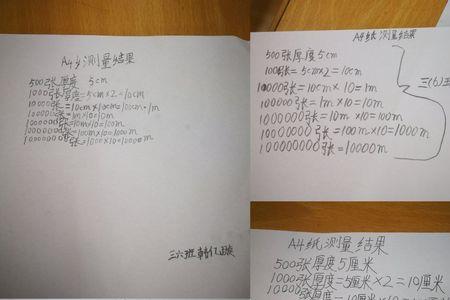 A4纸测量结果
500张厚度 5cm
1000张厚度=5cm×2=10cm
10000张=10cm×10=100cm=1m
100000张=1m×10=10m
1000000张=10m×10=100m
10000000张=100m×10=1000m
100000000张=1000×10=10000m
三六班
A4纸测量结果
500张厚度5cm
1000张=5cm×2=10cm
10000张=10cm×10=1m
100000张=1m×10=10m
1000000张=10m×10=100m
10000000张=100m×10=1000m
100000000张=10000m
三(6)
A4纸测量结果
500张厚度5厘米
1000张厚度=5厘米×2=10厘米
10000张厚度=10厘米×10